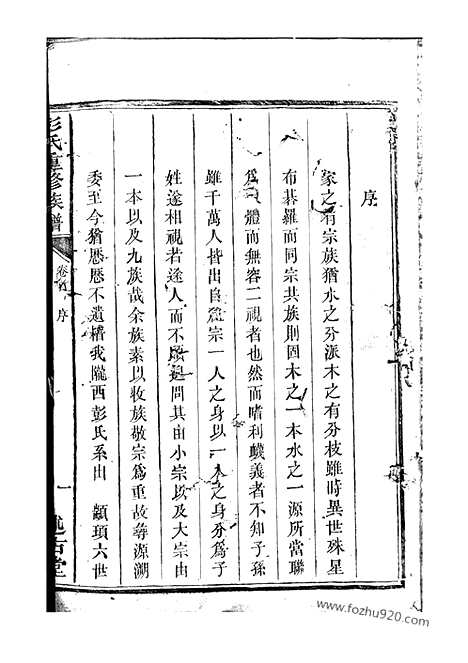 序
家之有宗族猶水之分派木之有分枝雖時異世殊星
布碁羅而同宗共族則固木之一本水之一源所當聯
為一體而無容二視者也然而嗜利蔑義者不知子孫
雖千萬人皆出自厥宗一人之身以一人之身分為子
姓遂相視若途人而不問其由小宗以及大宗由
一本以及九族哉余族素以收族敬宗為重故尋源溯
委至今猶歷歷不遺稽我隴西彭氏系出 顓頊六世
彭氏重修族譜
卷首
序
一
述古堂
www.fozhu920.com